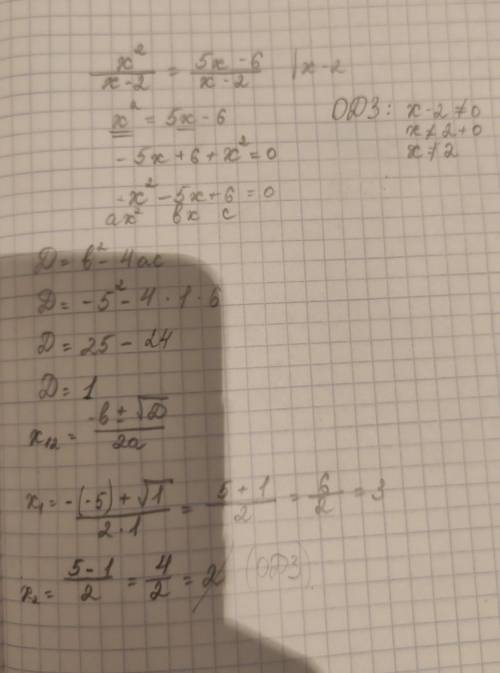 x²/(x-2) = (5x-6)/(x-2) | x-2
ОДЗ: x-2≠0
x² = 5x-6
x≠2+0
-5x+6+x²=0
x≠2
x²-5x+6=0
ax² bx c
D = b²-4ac
D = -5²-4·1·6
D = 25-24
D = 1
x₁₂ = (-b±√D)/2a
x₁ = (-(-5)+√1)/(2·1) = (5+1)/2 = 6/2 = 3
x₂ = (5-1)/2 = 4/2 = 2 (ОДЗ)